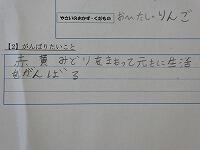 やさいのおかず・くだもの おひたし・りんご
【2】がんばりたいこと
赤 黄 みどりをまもって元きに生活
をがんばる